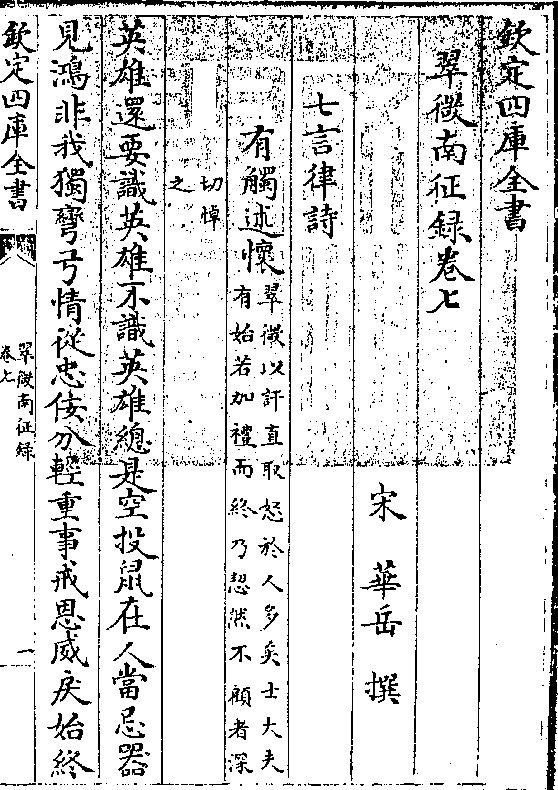 欽定四庫全書
翠微南征録卷七
宋 華岳 撰
七言律詩
有觸述懷翠微以訐直取怒於人多矣士大夫有始若加禮而終乃恝然不顧者深
切悼之
英雄還要識英雄不識英雄總是空投鼠在人當忌器
見鴻非我獨彎弓情從忠佞分輕重事戒恩威戾始終
欽定四庫全書
翠微南征録
卷七
一